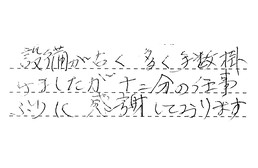 設備が古く 多く手数掛
けましたが十二分の仕事
ぶりに感謝しております